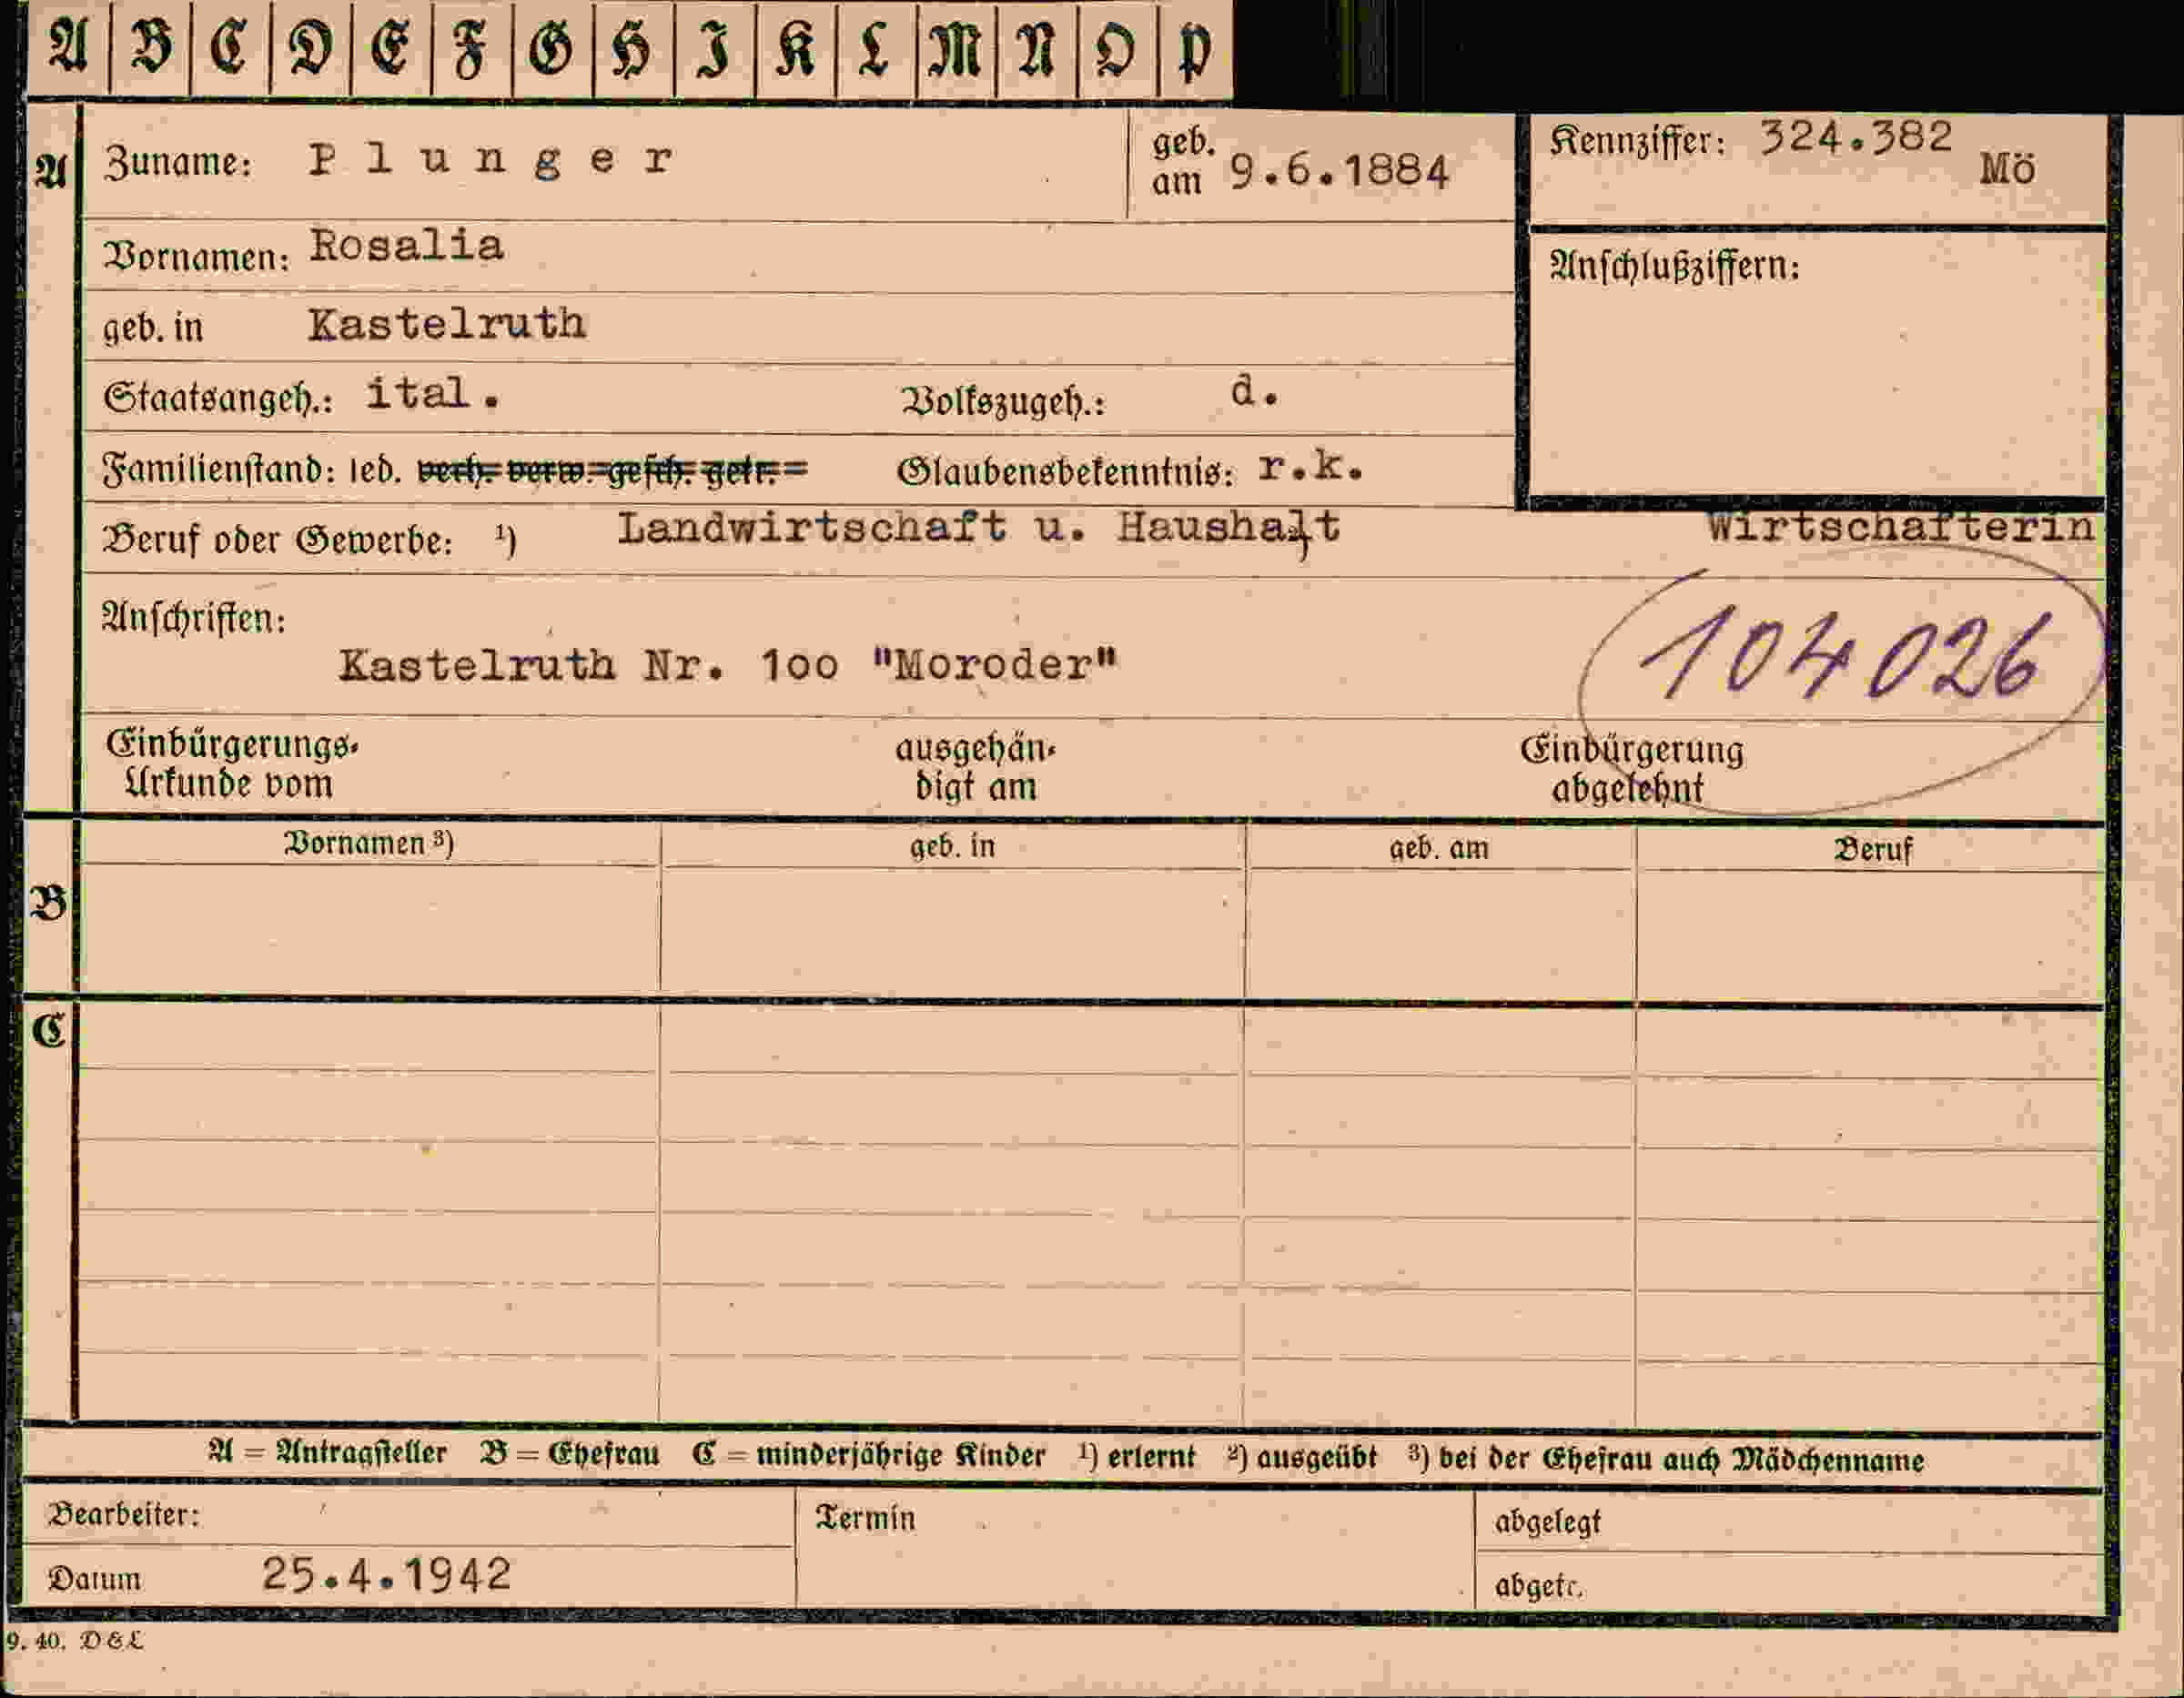 A B C D E F G H I K L M N O P
A Zuname: Plunger geb. am 9.6.1884 Kennziffer: 324.382 Mö
Vornamen: Rosalia Anschlußziffern:
geb. in Kastelruth
Staatsangeh.: ital. Volkszugeh.: d.
Familienstand: led. verh. verw. gesch. getr. Glaubensbekenntnis: r.k.
Beruf oder Gewerbe: ¹) Landwirtschaft u. Haushalt Wirtschafterin
Anschriften:
Kastelruth Nr. 100 "Moroder" 104026
Einbürgerungs- ausgehän- Einbürgerung
Urkunde vom digt am abgelehnt
Vornamen ³) geb. in geb. am Beruf
B
C
A = Antragsteller B = Ehefrau C = minderjährige Kinder ¹) erlernt ²) ausgeübt ³) bei der Ehefrau auch Mädchenname
Bearbeiter: Termin abgelegt
Datum 25.4.1942 abgetr.
9. 40. D&L